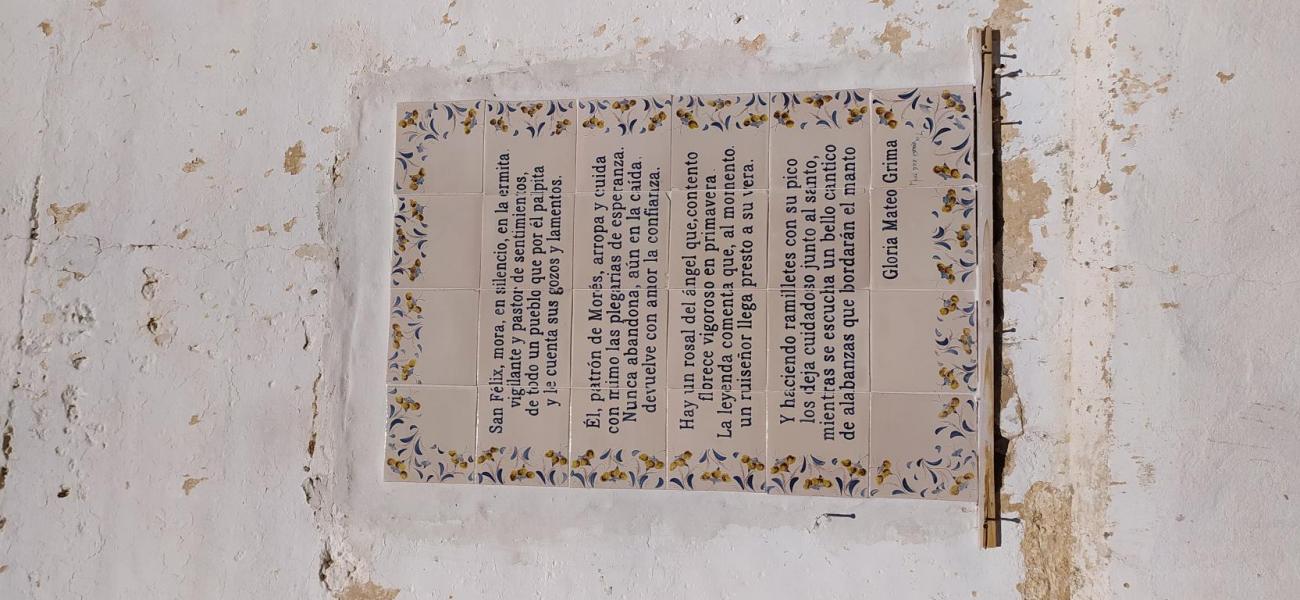 San Félix, mora, en silencio, en la ermita.
vigilante y pastor de sentimientos,
de todo un pueblo que por él palpita
y le cuenta sus gozos y lamentos.
Él, patrón de Morés, arropa y cuida
con mimo las plegarias de esperanza.
Nunca abandona, aún en la caída,
devuelve con amor la confianza.
Hay un rosal del ángel que,contento
florece vigoroso en primavera.
La leyenda comenta que, al momento
un ruiseñor llega presto a su vera.
Y haciendo ramilletes con su pico
los deja cuidadoso junto al santo,
mientras se escucha un bello cántico
de alabanzas que bordarán el manto
Gloria Mateo Grima